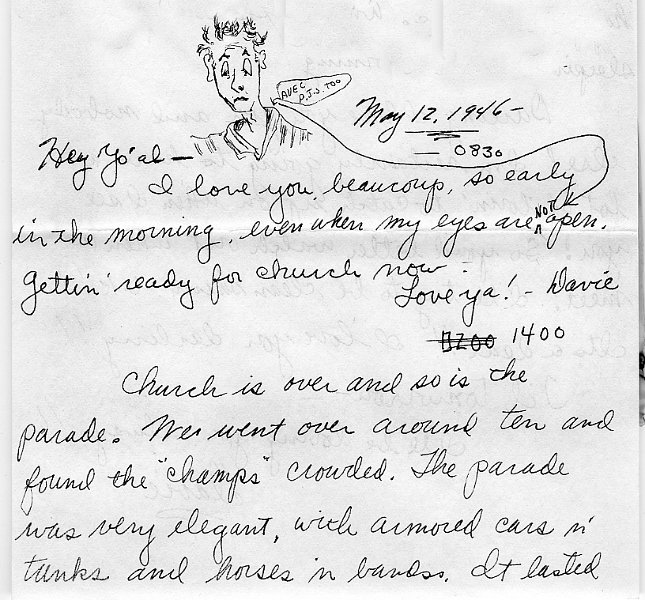 AVEC
P.J.s TOO
May 12, 1946 —
0830
Hey Yo'al —
I love you beaucoup, so early
in the morning, even when my eyes are NOT open.
Gettin' ready for church now.
Love ya! - Davie
1200 1400
Church is over and so is the
parade. Wes went over around ten and
found the "champs" crowded. The parade
was very elegant, with armored cars n'
tanks and horses n bands. It lasted